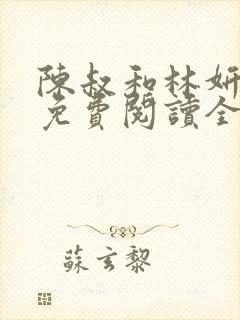 陳叔和林妍
免費閱讀全
蘇玄黎